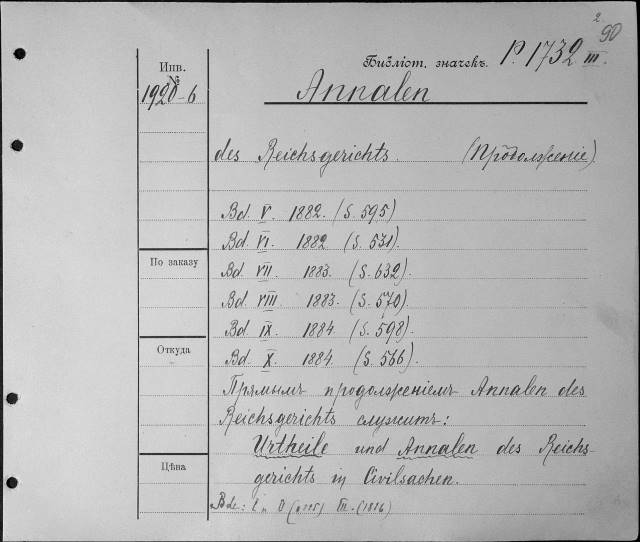 2 90
Библіот. значекъ. P. 1732 III.
Инв.
№
1920-6
Annalen
des Reichsgerichts. (Продолженіе)
Bd. V. 1882. (S. 595)
Bd. VI. 1882 (S. 531).
По заказу
Bd. VII. 1883. (S. 632).
Bd. VIII. 1883. (S. 570).
Bd. IX. 1884. (S. 598).
Откуда
Bd. X. 1884. (S. 566).
Прямымъ продолженіемъ Annalen des
Reichsgerichts служитъ:
Urtheile und Annalen des Reichs-
Цѣна
gerichts in Civilsachen.
Bde: III. (1886)